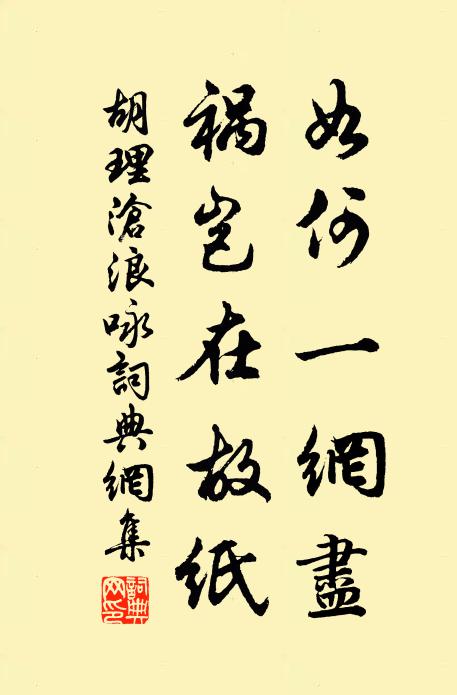 如何一網盡
禍豈在故紙
胡理滄浪咏詞典網集
詞典網印